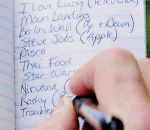 I Love Lucy (Television)
Moon Landing
Berlin Wall (Up + Down)
Steve Jobs (Apple)
Disco
Thai Food
Star Wars
Nirvana
Rocky
Trouble